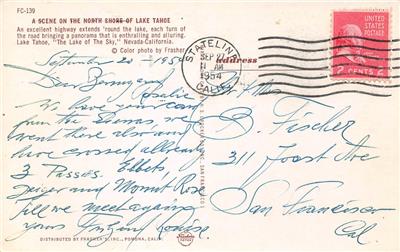 FC-139
A SCENE ON THE NORTH SHORE OF LAKE TAHOE
An excellent highway extends 'round the lake, each turn of
the road bringing a panorama that is enthralling and alluring.
Lake Tahoe, "The Lake of The Sky," Nevada-California.
© Color photo by Frasher
September 20 - 1954
Dear
Rosalie
We have your card
from the
went there also and
have crossed already
3 Passes. Ebbets,
Geiger and Mount Rose
Till we meet again
yours
Louise
DISTRIBUTED BY FRASHER'S, INC., POMONA, CALIF.
STATELINE
SEP 27
11 AM
1954
CALIF.
address
UNITED STATES POSTAGE
2 CENTS 2
B. Fischer
311 Joost Ave
San Francisco
Cal